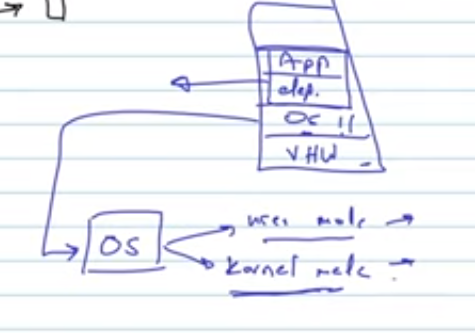 App
dep.
OS !!
VHW
user mode →
OS
Kernel mode →